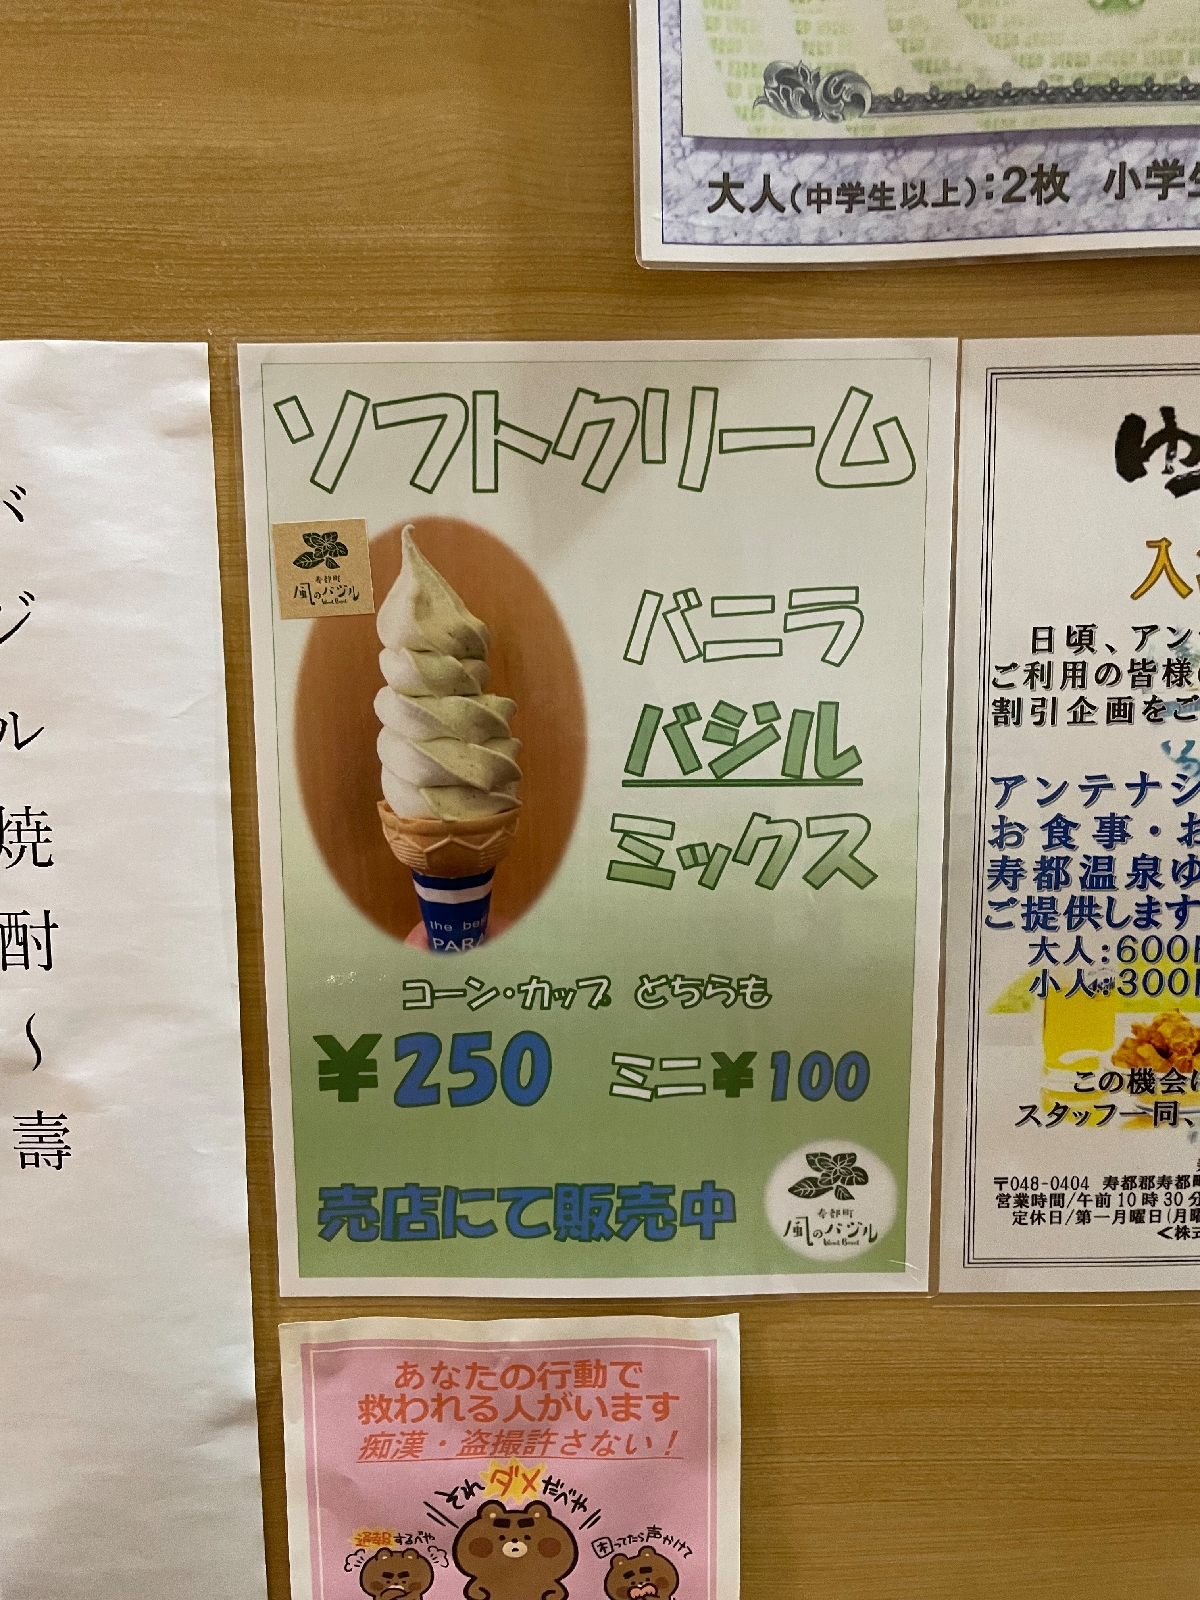 大人(中学生以上):2枚 小学生
バジル焼酎~壽
ソフトクリーム
寿都町
風のバジル
Wind Basil
バニラ
バジル
ミックス
コーン・カップ どちらも
¥250 ミニ¥100
売店にて販売中
寿都町
風のバジル
Wind Basil
the bes
PARA
ゆ
入
日頃、アン
ご利用の皆様
割引企画をご
アンテナシ
お食事・お
寿都温泉ゆ
ご提供します
大人:600円
小人:300円
この機会に
スタッフ一同、
〒048-0404 寿都郡寿都町
営業時間/午前10時30分
定休日/第一月曜日(月曜
<株式
あなたの行動で
救われる人がいます
痴漢・盗撮許さない!
それダメだべや
通報するべや
困ってたら声かけて